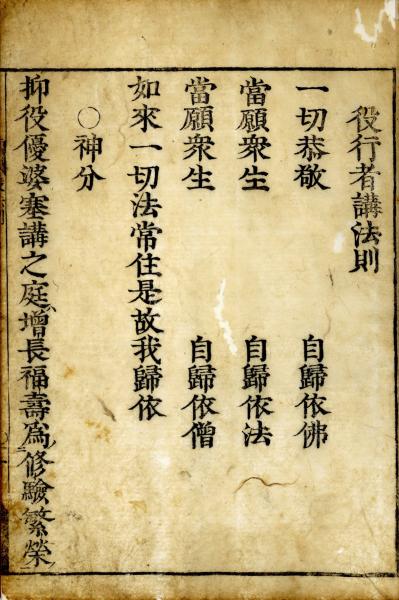 役行者講法則
一切恭敬　自歸依佛
當願衆生　自歸依法
當願衆生　自歸依僧
如來一切法常住是故我歸依
〇神分
抑役優婆塞講之庭增長福壽爲修驗繁榮